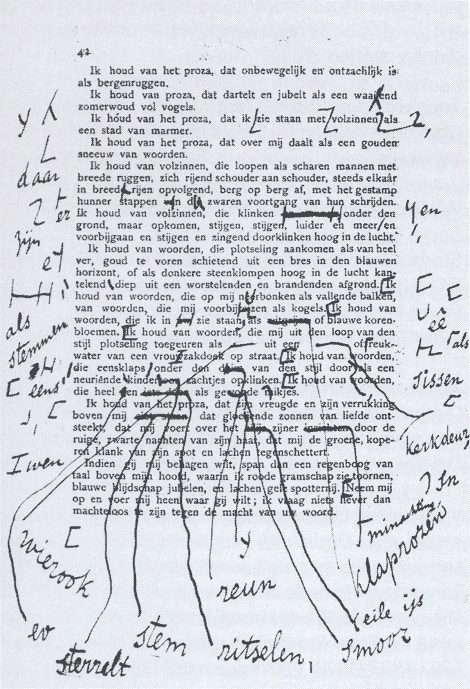 42
Ik houd van het proza, dat onbewegelijk en ontzachlijk is
als bergenruggen.
Ik houd van proza, dat dartelt en jubelt als een waaiend
zomerwoud vol vogels.
Ik houd van proza, dat ik zie staan met volzinnen als
een stad van marmer.
Ik houd van proza, dat over mij daalt als een gouden
sneeuw van woorden.
Ik houd van volzinnen, die loopen als scharen mannen met
breede ruggen, zich rijend schouder aan schouder, steeds elkaar
in breed rijen opvolgend, berg op berg af, met het gestamp
hunner stappen en den zwaren voortgang van hun schrijden.
Ik houd van volzinnen, die klinken onder den
grond, maar opkomen, stijgen, stijgen, luider en meer en
voorbijgaan en stijgen en zingend doorklinken hoog in de lucht.
Ik houd van woorden, die plotseling aankomen als van heel
ver, goud te voren schietend uit een bres in den blauwen
horizont, of als donkere steenklompen hoog in de lucht kan-
telend diep uit een worstelenden en brandenden afgrond. Ik
houd van woorden, die op mij nerbonken als vallende balken,
van woorden, die mij voorbij en als kogels. Ik houd van
woorden, die ik in zie staan als of blauwe koren-
bloemen. Ik houd van woorden, die mij uit den loop van den
stijl plotseling toegeuren als uit een of reuk-
water van een vrouwzakdoek op straat. Ik houd van woorden,
die eensklaps onder den van den stijl door als een
neuriënde kinder zachtjes opklinken. Ik houd van woorden,
die heel een als gesmoorde snikjes.
Ik houd van het proza, dat zijn vreugde en zijn verrukking
boven mij dat gloeiende zonnen van liefde ont-
steekt, dat mij voert over het zijner door de
ruige, zwarte nachten van zijn haat, dat mij de groene, kope-
ren klank van zijn spot en lachen schettert.
Indien gij mij behagen wilt, span dan een regenboog van
taal boven mijn hoofd, waarin ik roode gramschap zie toornen,
blauwe blijdschap jubelen, en lachen gele spotternij. Neem mij
op en voer mij heen waar gij wilt; ik vraag niets liever dan
machteloos te zijn tegen de macht van uw woord.
daar
zijn
als
stemmen
eens
wen
wierook
ev
sterrelt
stem
reun
ritselen,
yen
als
sissen
kerkdeur
minachting
klaprozen
eile ijs
smoor